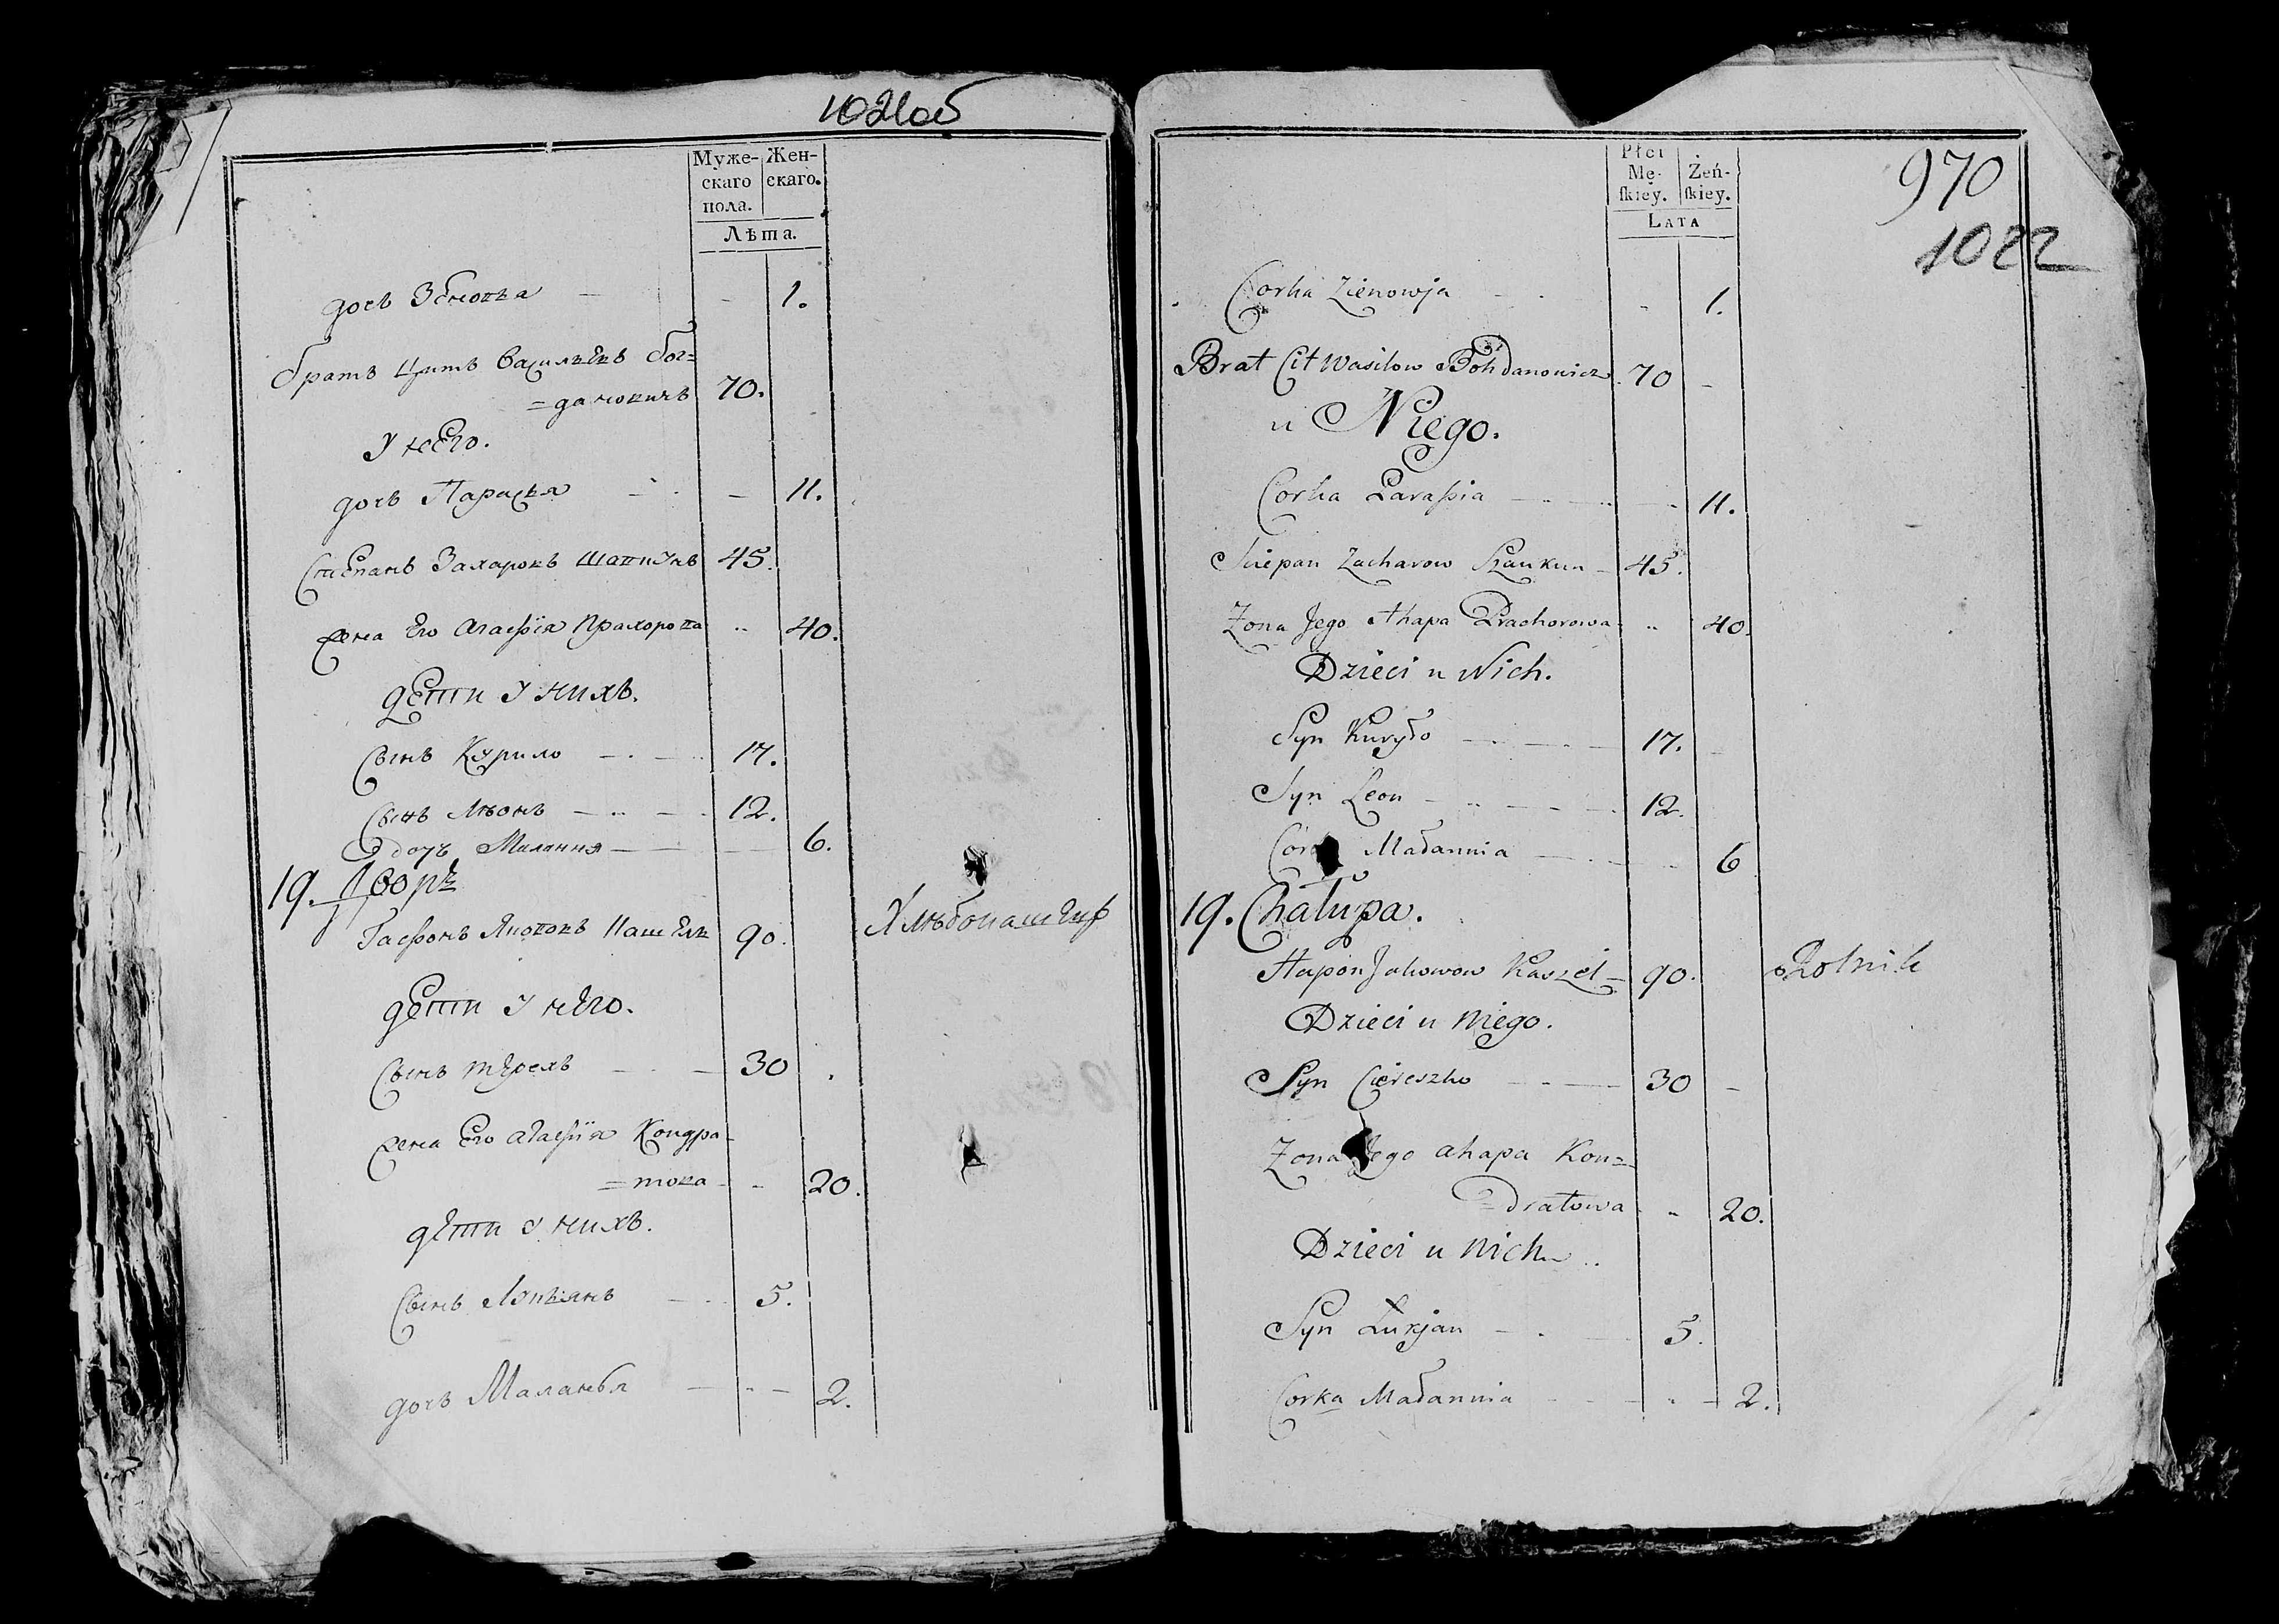 1021об
Муже-
скаго
пола.
Жен-
скаго.
Лѣта.
дочь Зѣновья - - 1.
братъ Цитъ Васильевъ Бог=
=дановичъ 70.
У него.
дочь Параскя - - 11.
Степанъ Захаровъ 45.
жена Его Агафія Прахорова 40.
дети У нихъ.
Сынъ Курило 17.
Сынъ Лѣонъ 12.
дочь Малання 6.
19. Дворъ
Гафонъ Якововъ 90. Хлѣбопашецъ
дети У него.
Сынъ 30
жена Его Агафія Кондра-
=това 20.
дети У нихъ.
Сынъ Лукьянъ 5.
дочь Маланья 2.
Płci
Mę-
ſkiey.
Żeń-
ſkiey.
LATA
970
1022
Corka Zienowja 1.
Brat Cit Wasilow Bohdanowicz 70 -
u Niego.
Corka Paraſsia 11.
Sciepan Zacharow Szaukun 45.
Zona Jego Ahapa Prachorowa 40.
Dzieci u Nich.
Syn Kuryło 17.
Syn Leon 12.
Małannia 6
19. Chałupa.
Hapon Jakowow Kaszel 90. Rolnik
Dzieci u Niego.
Syn Ciereszko 30 -
Zona Jego ahapa Kon=
=dratowa 20.
Dzieci u Nich
Syn Łukjan 5.
Corka Małannia 2.